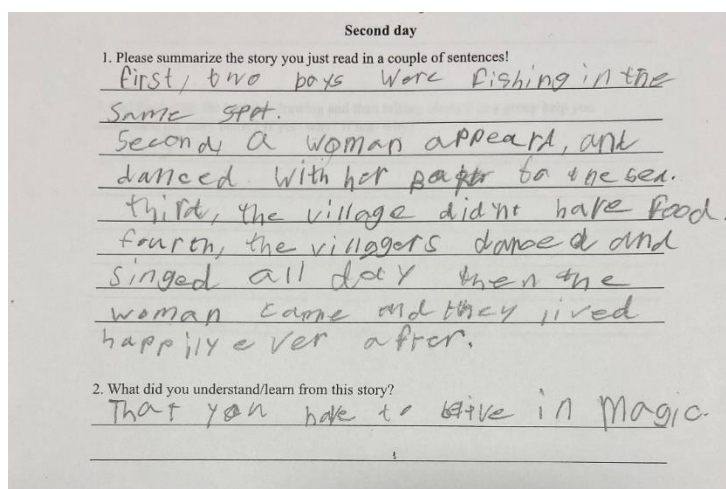 Second day
1. Please summarize the story you just read in a couple of sentences!
first, two boys Were fishing in the
Same spot.
Second, a woman appeard, and
danced With her to the sea.
third, the village did'nt have food.
fourth, the villagers danced and
Singed all day then the
woman came and they lived
happily ever after.
2. What did you understand/learn from this story?
That you have to in magic.